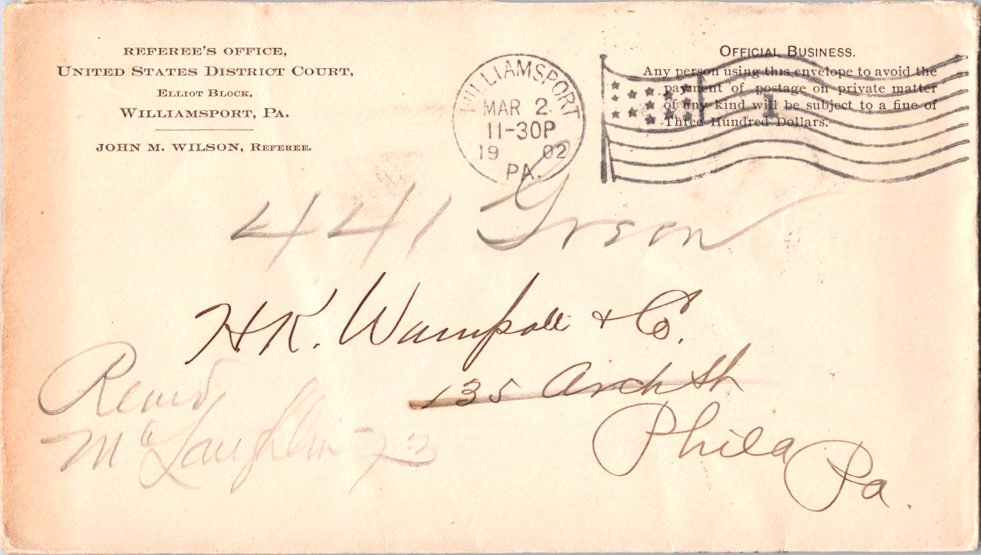 REFEREE'S OFFICE,
UNITED STATES DISTRICT COURT,
ELLIOT BLOCK,
WILLIAMSPORT, PA.
JOHN M. WILSON, REFEREE.
WILLIAMSPORT
MAR 2
11-30P
1902
PA.
OFFICIAL BUSINESS.
Any person using this envelope to avoid the
payment of postage on private matter
of any kind will be subject to a fine of
Three Hundred Dollars.
1
441 Green
H.K. Wampole & Co.
135 Arch St
Phila Pa.
McLaughlin